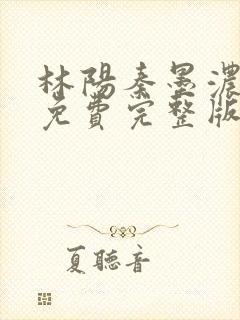 林陽秦墨濃
免費完整版
夏聽音